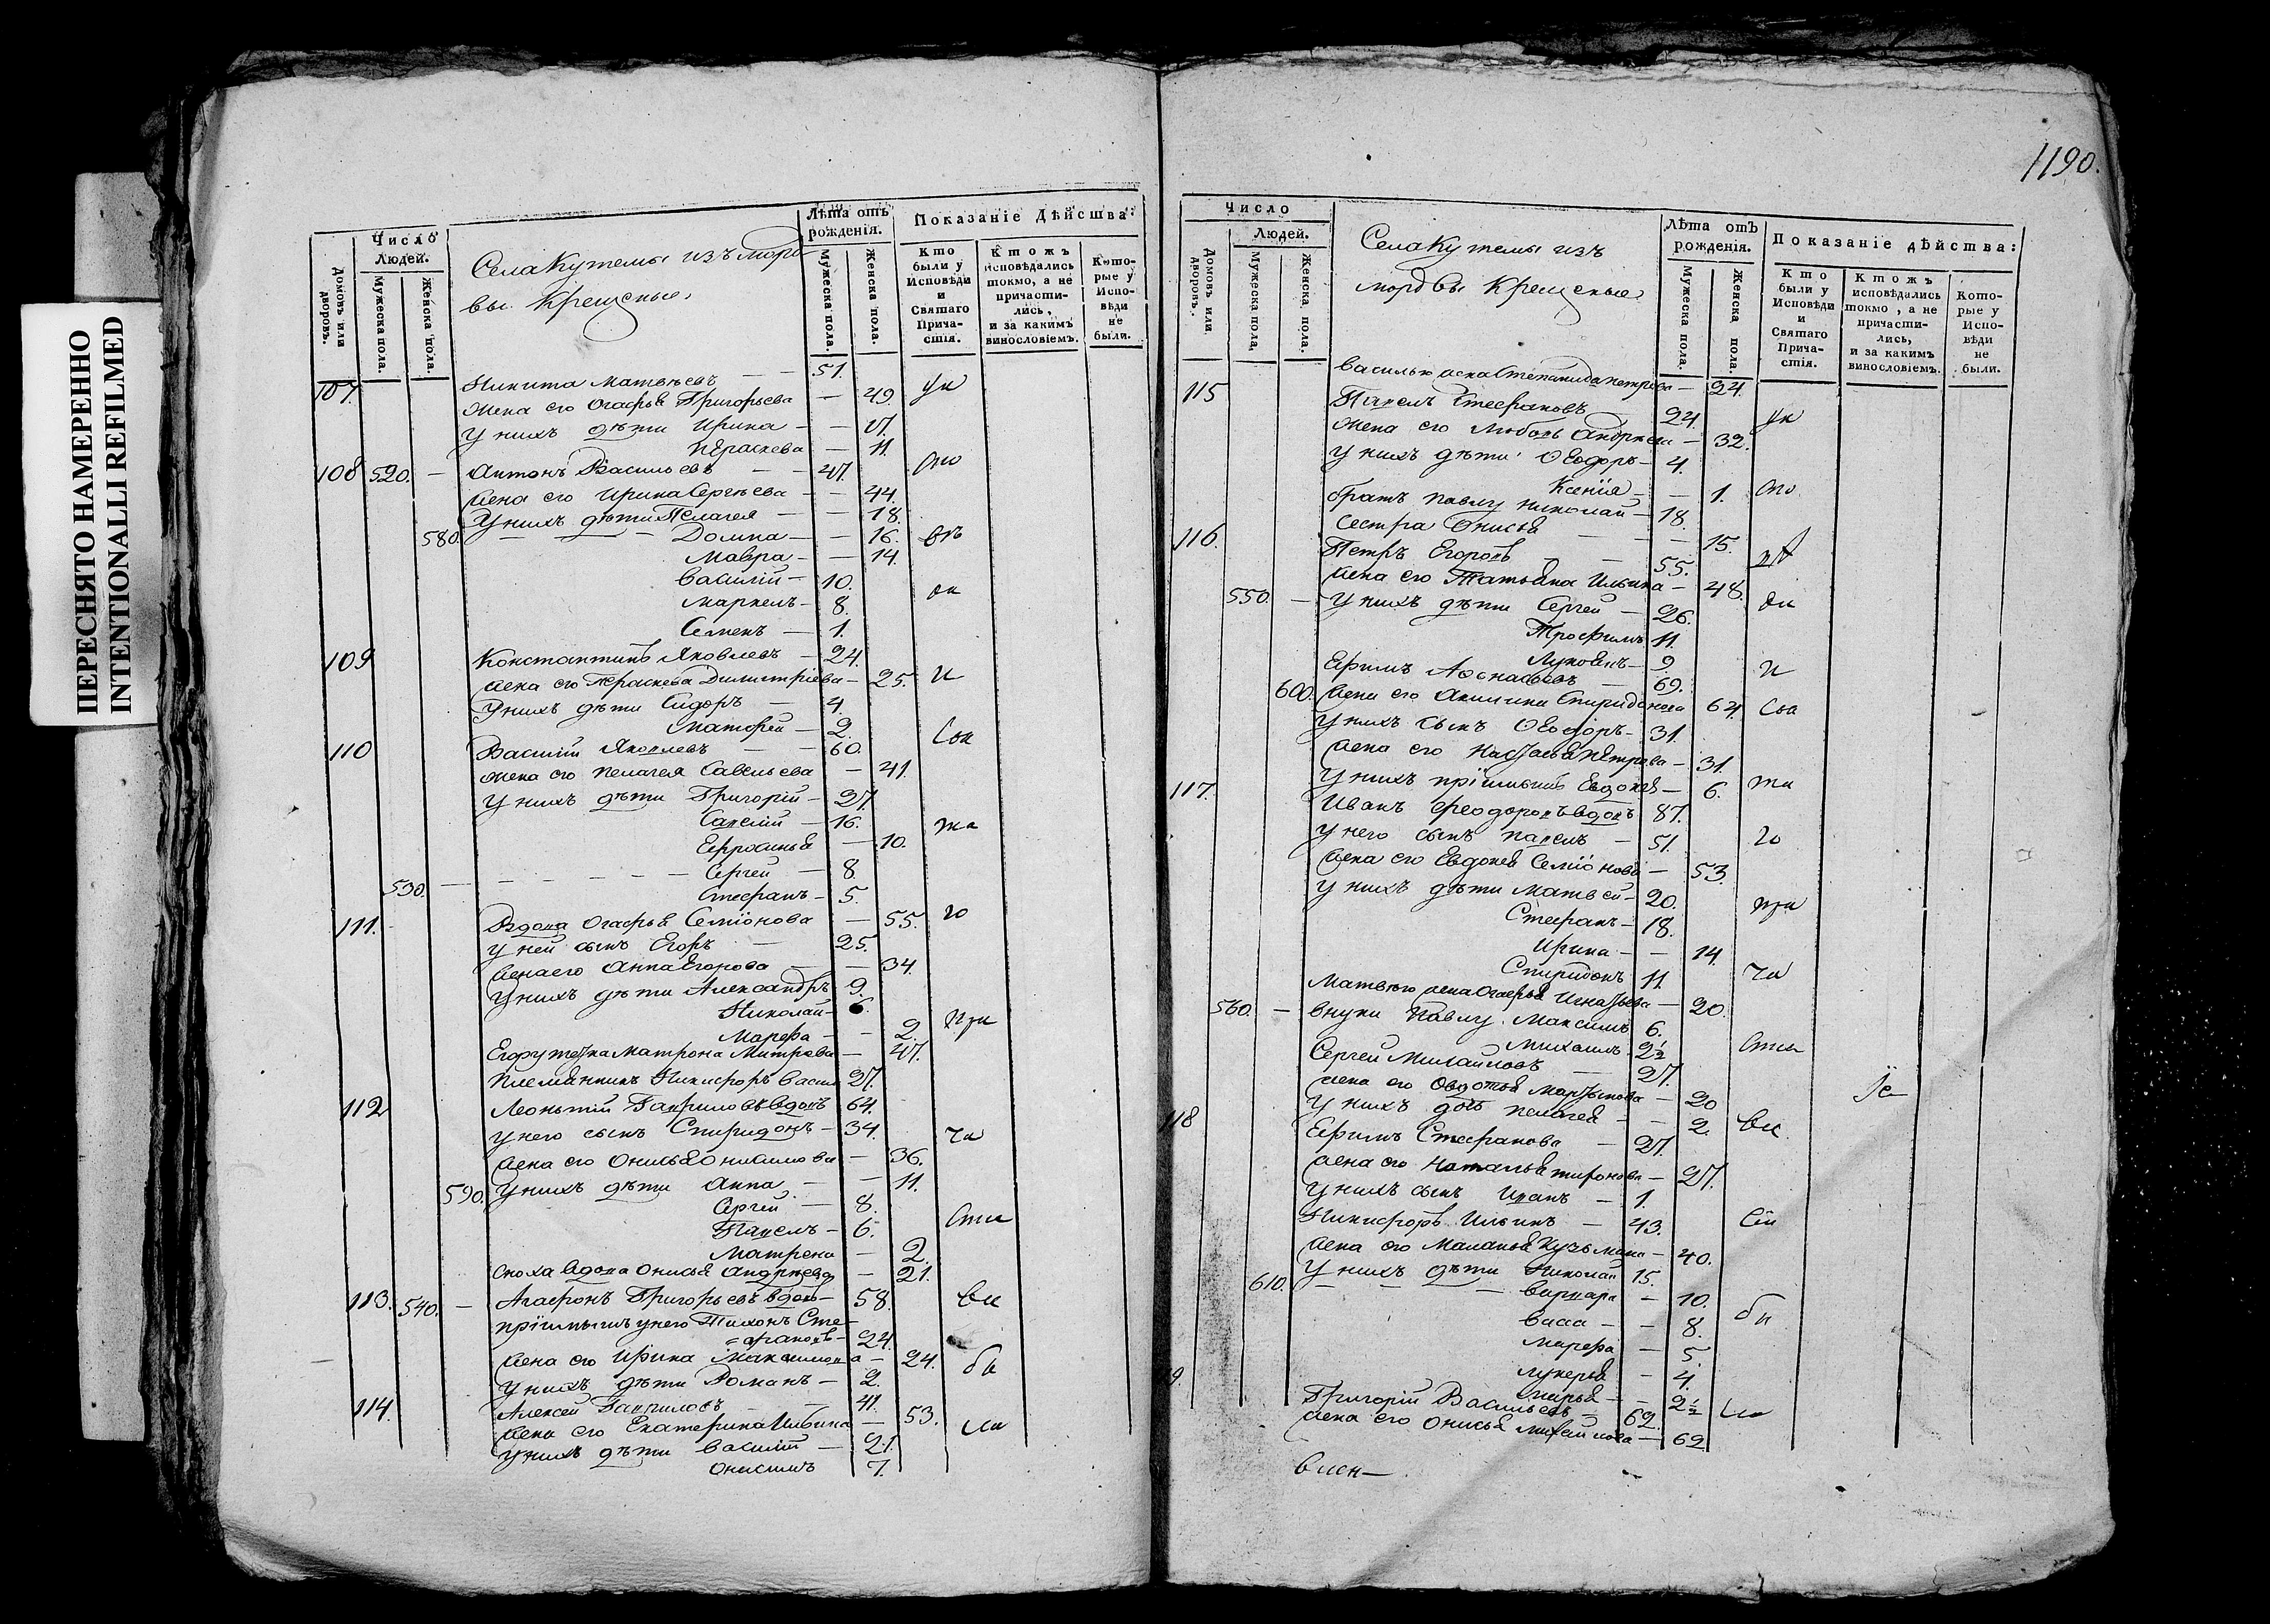 ПЕРЕСНЯТО НАМЕРЕННО
INTENTIONALLI REFILMED
Число
Людей.
Домовъ или дворовъ.
Мужеска пола.
Женска пола.
Села Кутемы изъ мord-
вы крещеные.
Лѣта отъ рожденія.
Мужеска пола.
Женска пола.
Показаніе Дѣйства:
Кто были у Исповѣди и Святаго Причастія.
Ктожъ исповѣдались токмо, а не причастились, и за какимъ винословіемъ.
Которые у Исповѣди не были.
107. Никита Матвѣевъ — — 51.
Жена его Огафья Григорьева — 49.
У нихъ дѣти Ирина — — 17.
Параскева — 11.
108 520. — Антонъ Васильевъ — — 47.
Жена его Ирина Сергѣева — — 44.
У нихъ дѣти Пелагея — — 18.
580. — — — Домна — — 16.
Мавра — — 14.
Василій — 10.
Маркелъ — 8.
Семенъ — 1.
109 Константинъ Яковлевъ — 24.
Жена его Параскева Димитріева — 25.
У нихъ дѣти Сидоръ — 4.
Матфей — 2.
110 Василій Яковлевъ — — 60.
Жена его Пелагея Савельева — 41.
У нихъ дѣти Григорій — 27.
Савелій — 16.
Ефросинья — 10.
530. — — — — — Сергей — 8
Стефанъ — 5.
111. Вдова Огафья Семіонова — 55.
У ней сынъ Егоръ — 25.
Жена его Анна Егорова — — 34.
У нихъ дѣти Александръ 9.
Николай — 6.
Марфа — — 2.
Егору тетка Матрона Митрева — 47.
Племянникъ Никифоръ Васил 27.
112 Леонтій Гавриловъ вдовъ 64.
У него сынъ Спиридонъ — 34.
Жена его Онисья Онисимова — 36.
590. У нихъ дѣти Анна — — 11.
Сергей — 8.
Павелъ — 6.
Матрена — 2.
Сноха вдова Онисья Андреева — 21.
113. 540. — Агафонъ Григорьевъ вдов — 58.
Пріимышъ у него Тихонъ Сте-
фановъ — 24.
Жена его Ирина Максимова — 24.
У нихъ дѣти Романъ — 2.
114. Алексей Гавриловъ — — 41.
Жена его Екатерина Ильина — 53.
У нихъ дѣти Василій — 21.
Онисимъ 7.
1190.
Число
Людей.
Домовъ или дворовъ.
Мужеска пола.
Женска пола.
Села Кутемы изъ
мордвы крещеные
Лѣта отъ рожденія.
Мужеска пола.
Женска пола.
Показаніе дѣйства:
Кто были у Исповѣди и Святаго Причастія.
Ктожъ исповѣдались токмо, а не причастились, и за какимъ винословіемъ.
Которые у Исповѣди не были.
Василью жена Степанида Петрова — 24.
115 Павелъ Стефановъ — 24.
Жена его Любовь Андреева — 32.
У нихъ дѣти Ѳеодоръ — 4.
Ксенія — — 1.
братъ Павлу Николай — 18.
Сестра Онисья — — — 15.
116. Петръ Егоровъ — — 55.
Жена его Татьяна Ильина — 48.
550. — У нихъ дѣти Сергей — 26.
Трофимъ 11.
Лукоянъ — 9.
Ефимъ Афонасьевъ — 69.
600. Жена его Акилина Спиридонова 64.
У нихъ сынъ Ѳеодоръ — 31.
Жена его Настасья Петрова — 31.
У нихъ пріимышъ Евдокея — 6.
117. Иванъ Феодоровъ вдовъ 87.
У него сынъ Павелъ — 51.
Жена его Евдокея Семіонова — 53.
У нихъ дѣти Матвей — 20.
Стефанъ — 18.
Ирина — — 14.
Спиридонъ 11.
Матвѣю жена Огафья Игнатьева — 20.
560. — Внуки Павлу. Максимъ 6.
Михаилъ 2½
Сергей Михайловъ — 27.
Жена его Овдотья Мартынова — 20
У нихъ дочь Пелагея — — 2.
118 Ефимъ Стефановъ — 27.
Жена его Наталья — 27.
У нихъ сынъ Иванъ — 1.
Никифоръ Ильинъ — 43.
Жена его Маланья Кузьмина — 40.
У нихъ дѣти Николай 15.
610. — — — Варвара — 10.
Васса — — 8.
Марфа — 5.
Лукерья — 4.
Марья — — 2½
9. Григорій Васильевъ — 62.
Жена его Онисья Михайлова — 62